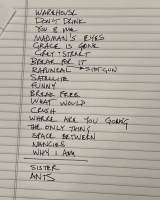 WAREHOUSE
DON'T DRINK
YOU & ME
MADMAN'S EYES
GRACE IS GONE
GREY STREET
BREAK FOR IT
RAPUNZEL *SHOTGUN
SATELLITE
FUNNY
BREAK FREE
WHAT WOULD
CRUSH
WHERE ARE YOU GOING
THE ONLY THING
SPACE BETWEEN
NANCIES
WHY I AM
SISTER
ANTS